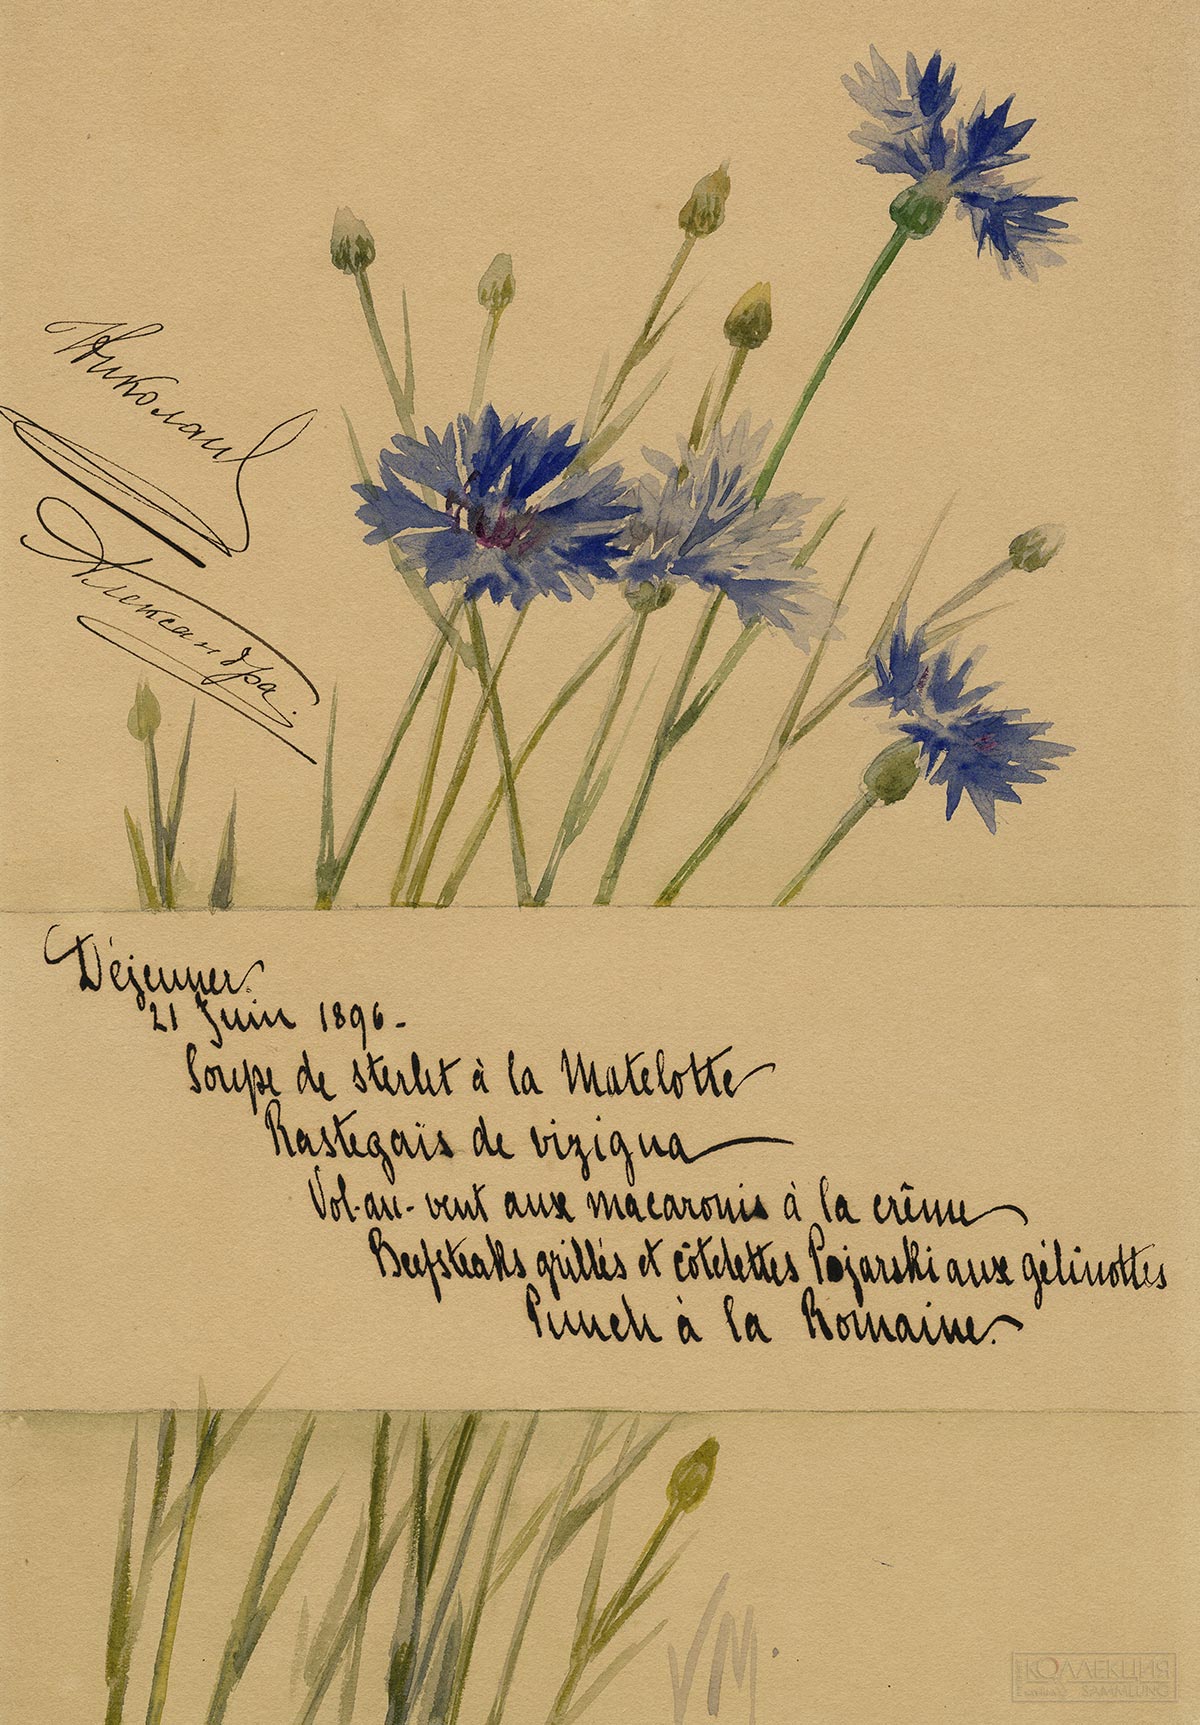 Николай
Александра.
Déjeuner.
21 Juin 1896-
Soupe de sterlet à la Matelotte
Rastegaïs de vizigua
Vol-au-vent aux macaronis à la crême
Beefsteaks grillés et côtelettes Pojarski aux gélinottes
Punch à la Romaine.
VM.
КОЛЛЕКЦИЯ
SAMMLUNG